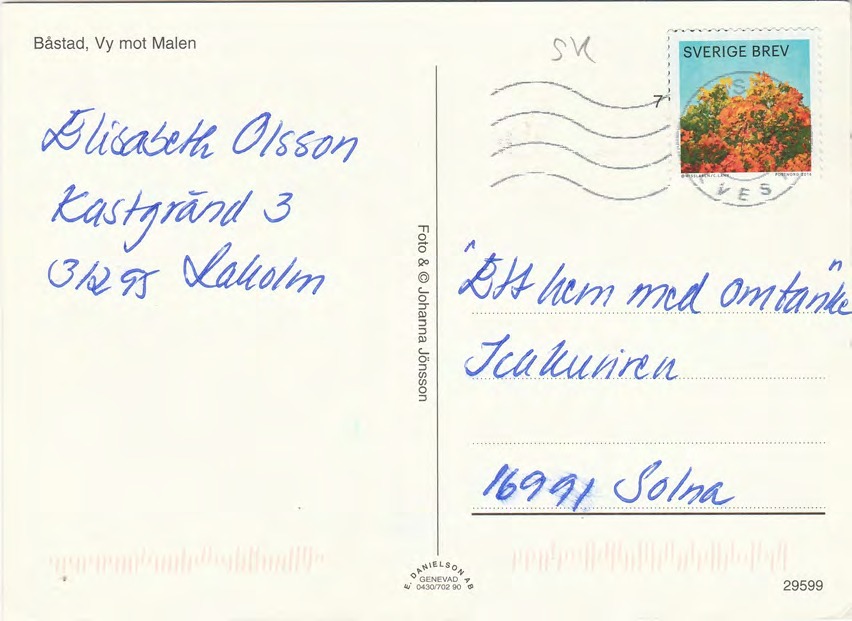 Båstad, Vy mot Malen
SVERIGE BREV
7
VES
Elisabeth Olsson
Kastgränd 3
31295 Laholm
Foto & © Johanna Jönsson
"Ett hem med omtanke"
Icakuriren
16991 Solna
E. DANIELSON AB
GENEVAD
0430/702 90
29599